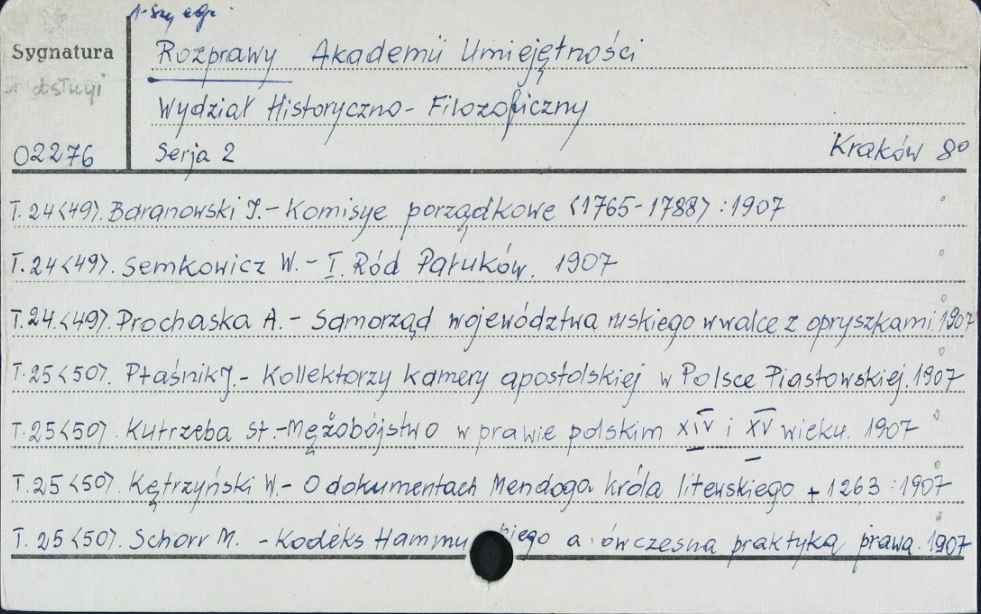 1-szy egz.
Sygnatura
Rozprawy Akademii Umiejętności
Wydział Historyczno-Filozoficzny
02276
Serja 2
Kraków 8°
T. 24<49>. Baranowski J. - Komisye porządkowe <1765-1788> : 1907
T. 24<49>. Semkowicz W. - I. Ród Pałuków. 1907
T. 24.<49>. Prochaska A. - Samorząd województwa ruskiego w walce z opryszkami 1907
T. 25<50>. Ptaśnik J. - Kollektorzy Kamery apostolskiej w Polsce Piastowskiej. 1907
T. 25<50>. Kutrzeba St. - Mężobójstwo w prawie polskim XIV i XV wieku. 1907
T. 25<50>. Kętrzyński W. - O dokumentach Mendoga króla litewskiego + 1263 : 1907
T. 25<50>. Schorr M. - Kodeks Hammu biego a ówczesna praktyka prawa. 1907